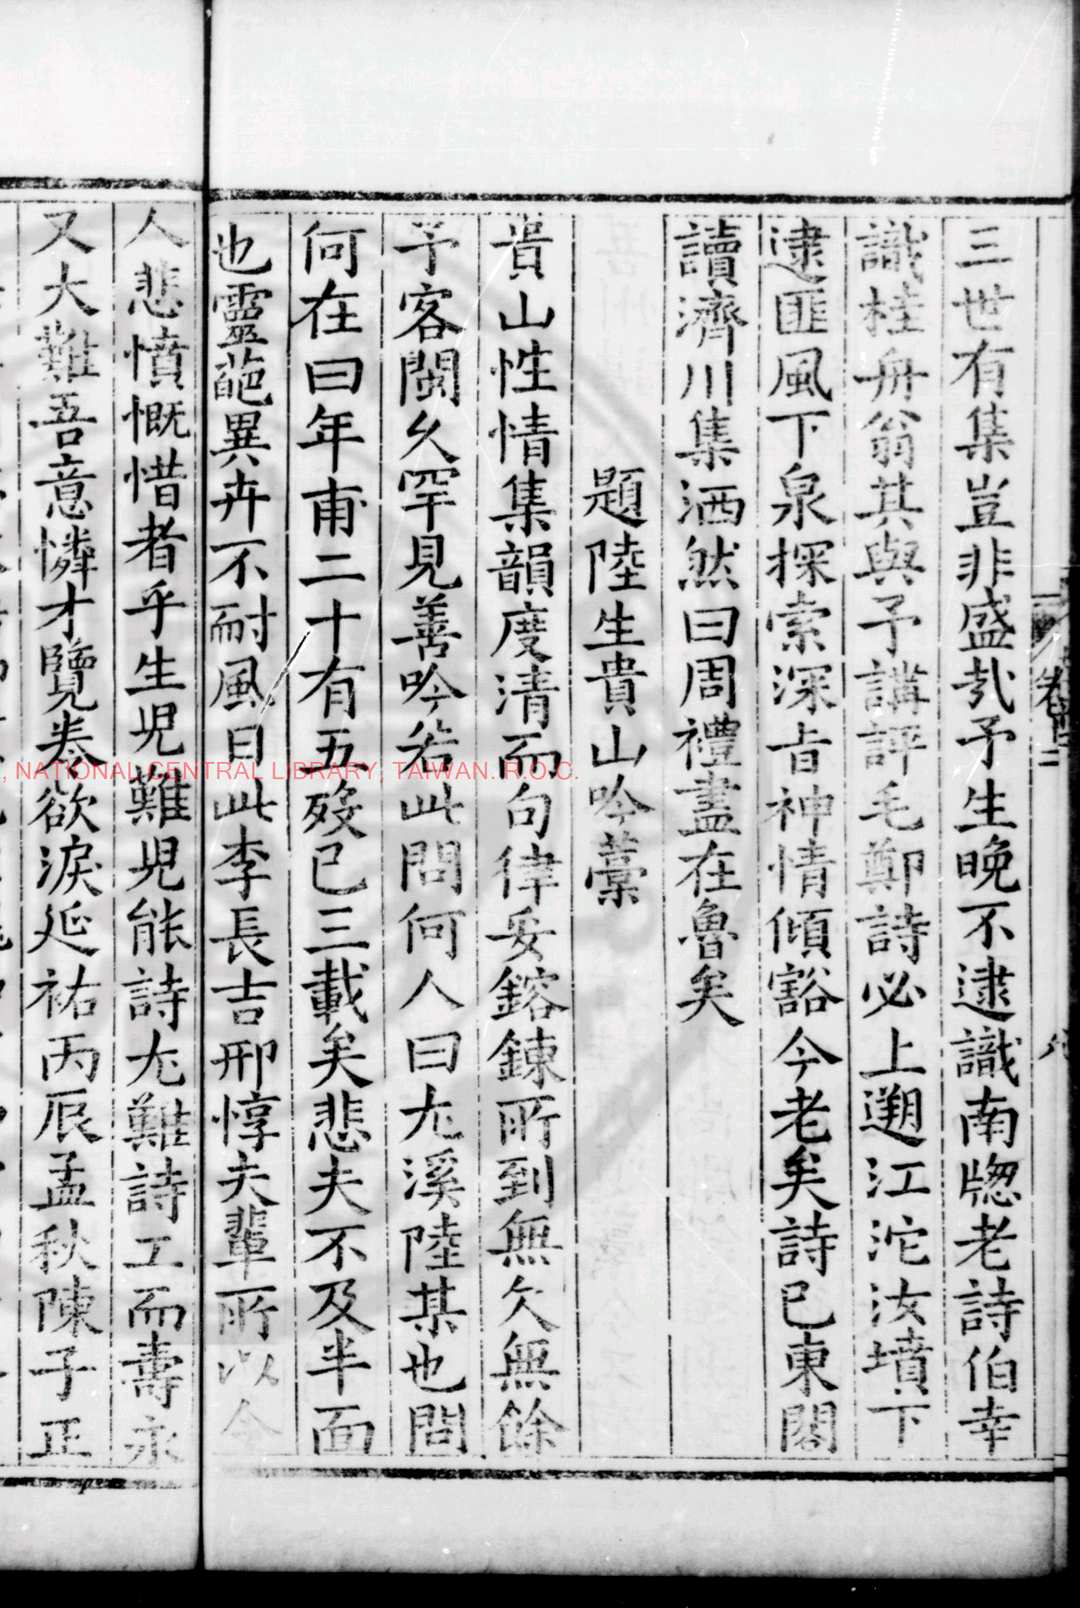 三世有集豈非盛㢤予生晚不逮識南牕老詩伯幸
識桂舟翁其與予講評毛鄭詩必上遡江沱汝墳下
逮匪風下泉探索深旨神情傾豁今老矣詩已東閣
讀濟川集洒然曰周禮盡在魯矣
題陸生貴山吟藁
貴山性情集韻度清而句律妥鎔鍊所到無欠無餘
予客閩久罕見善吟若此問何人曰尢溪陸某也問
何在曰年甫二十有五歿已三載矣悲夫不及半面
也靈葩異卉不耐風日此李長吉邢惇夫輩所以令
人悲憤慨惜者乎生児難児能詩尢難詩工而壽永
又大難吾意憐才覽卷欲淚延祐丙辰孟秋陳子正
NATIONAL CENTRAL LIBRARY, TAIWAN. R.O.C.